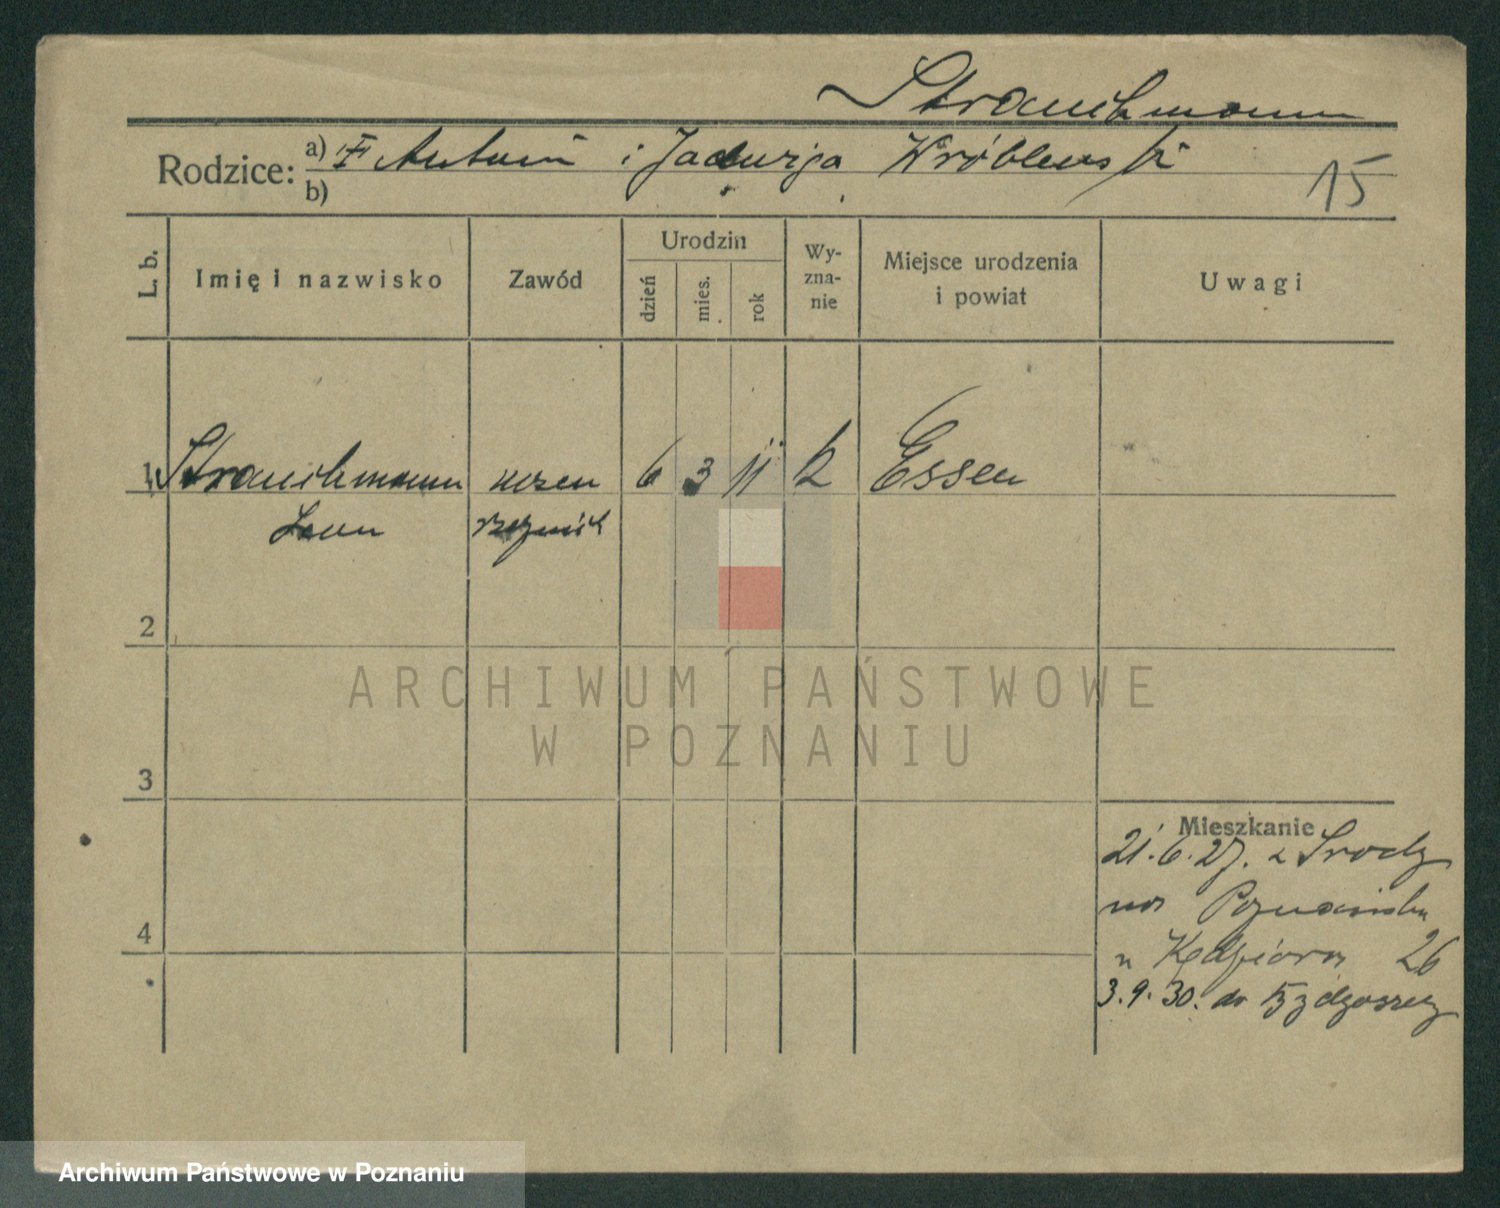 Strauchmann
Rodzice: a) Antoni i Jadwiga Wróblewski
b)
15
L. b.
Imię i nazwisko
Zawód
Urodzin
dzień
mies.
rok
Wy-
zna-
nie
Miejsce urodzenia
i powiat
Uwagi
1 Strauchmann uczeń 6 3 11 k Essen
Leon rzeźnik
2
3
4
Mieszkanie
21.6.27. z Środy
Poznańska
26
3.9.30. do Bydgoszczy
ARCHIWUM PAŃSTWOWE
W POZNANIU
Archiwum Państwowe w Poznaniu